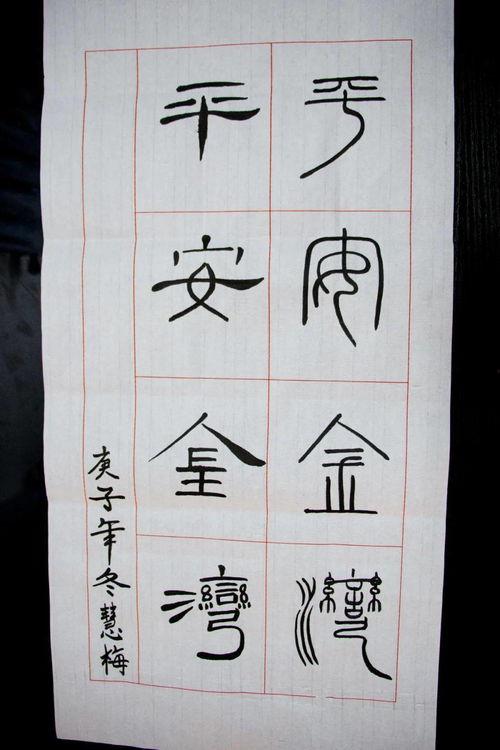 平安金灣
平安金灣
庚子年冬慧梅